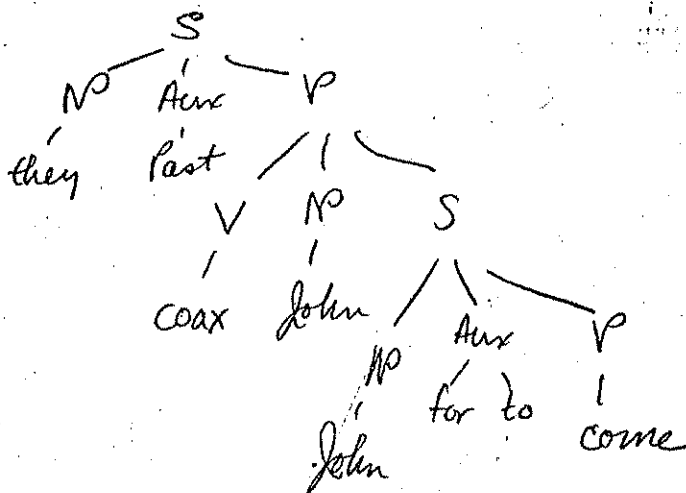 S
NP Aux VP
they Past
V NP S
coax John
NP Aux VP
for to come
John